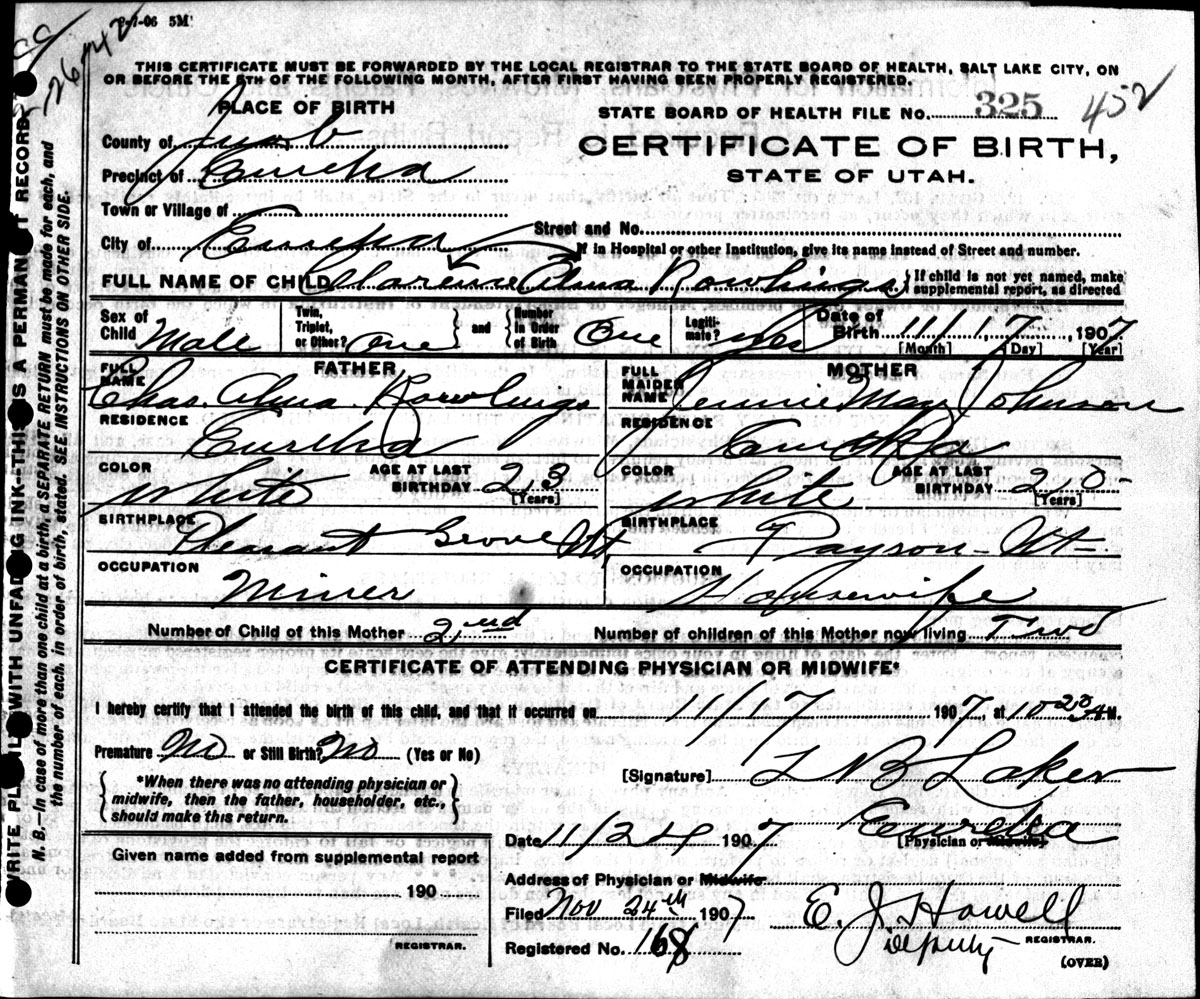 P-1-06 5M
26142
THIS CERTIFICATE MUST BE FORWARDED BY THE LOCAL REGISTRAR TO THE STATE BOARD OF HEALTH, SALT LAKE CITY, ON
OR BEFORE THE 5TH OF THE FOLLOWING MONTH, AFTER FIRST HAVING BEEN PROPERLY REGISTERED.
PLACE OF BIRTH
STATE BOARD OF HEALTH FILE No. 325 452
County of Juab
CERTIFICATE OF BIRTH,
Precinct of Eureka
STATE OF UTAH.
Town or Village of
City of Eureka
Street and No.
If in Hospital or other Institution, give its name instead of Street and number.
FULL NAME OF CHILD Clarence Alma Rowlings
If child is not yet named, make supplemental report, as directed
Sex of Child Male
Twin, Triplet, or Other? One and Number in Order of Birth One
Legitimate? yes
Date of Birth 11/17, 1907
[Month] [Day] [Year]
FATHER
MOTHER
FULL NAME Chas. Alma Rowlings
FULL MAIDEN NAME Jennie May Johnson
RESIDENCE Eureka
RESIDENCE Eureka
COLOR White AGE AT LAST BIRTHDAY 23 [Years]
COLOR White AGE AT LAST BIRTHDAY 20 [Years]
BIRTHPLACE Pleasant Grove Ut
BIRTHPLACE Payson Ut
OCCUPATION Miner
OCCUPATION Housewife
Number of Child of this Mother 2nd
Number of children of this Mother now living Two
CERTIFICATE OF ATTENDING PHYSICIAN OR MIDWIFE*
I hereby certify that I attended the birth of this child, and that it occurred on 11/17 1907, at 10 20 A M.
Premature No or Still Birth? No (Yes or No)
*When there was no attending physician or midwife, then the father, householder, etc., should make this return.
[Signature] L B Laker
Eureka
[Physician or Midwife]
Date 11/24 1907
Given name added from supplemental report
190
REGISTRAR.
Address of Physician or Midwife
Filed Nov 24th 1907
E. J. Howell
Deputy REGISTRAR.
Registered No. 168
(OVER)
WRITE PLAINLY WITH UNFADING INK—THIS IS A PERMANENT RECORD
N. B.—In case of more than one child at a birth, a SEPARATE RETURN must be made for each, and
the number of each, in order of birth, stated. SEE INSTRUCTIONS ON OTHER SIDE.